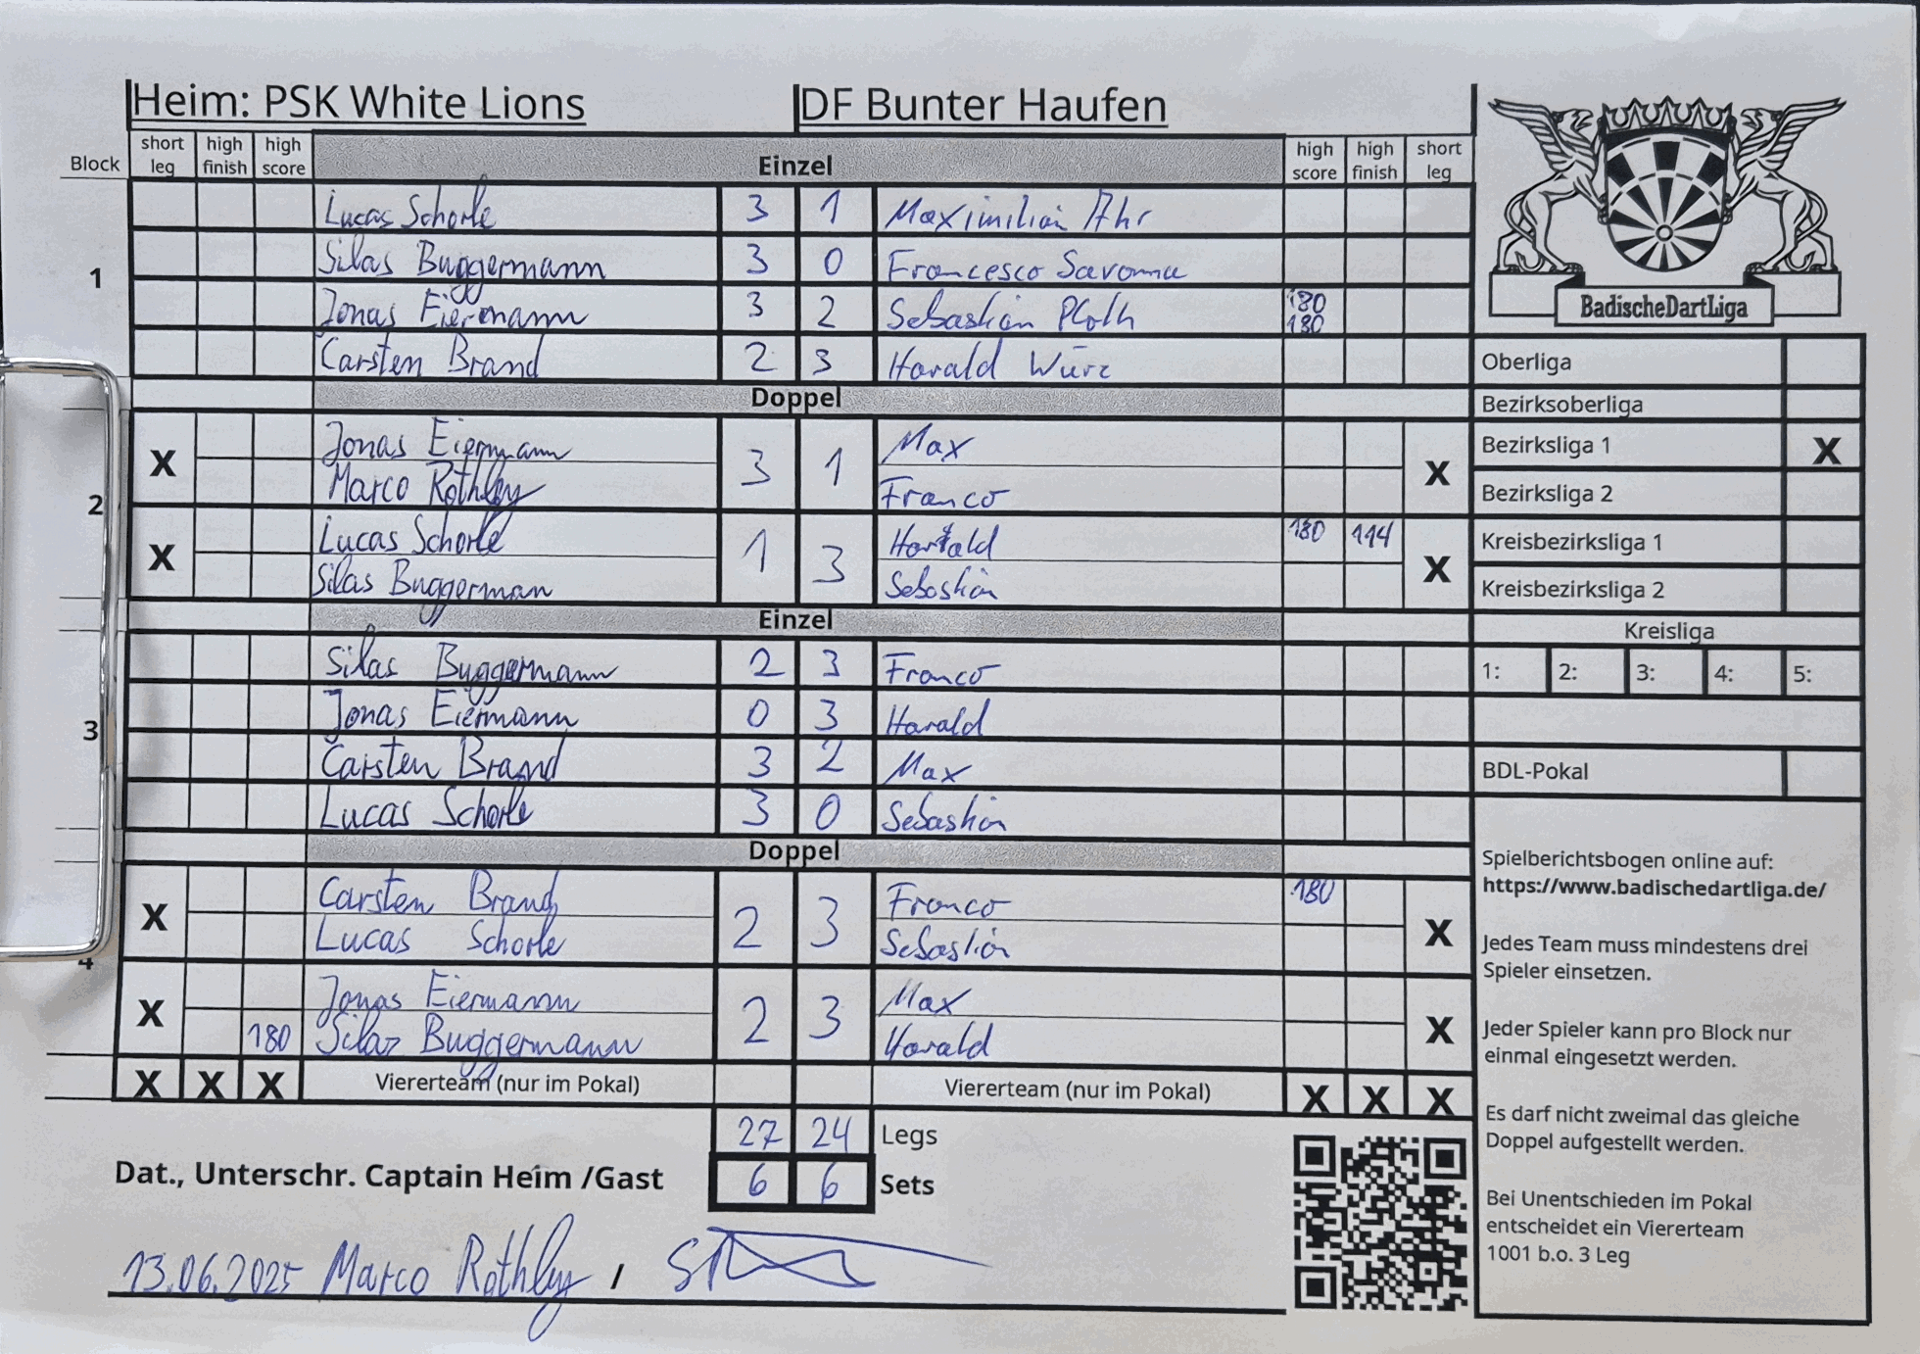 Heim: PSK White Lions DF Bunter Haufen
Block short leg high finish high score Einzel high score high finish short leg
1
Lucas Schorle 3 1 Maximilian Ahr
Silas Buggermann 3 0 Francesco Savonna
Jonas Eiermann 3 2 Sebastian Ploth 180 180
Carsten Brand 2 3 Harald Würz
Doppel
2
X Jonas Eiermann 3 1 Max X
Marco Rothley Franco
X Lucas Schorle 1 3 Harald 180 114 X
Silas Buggerman Sebastian
Einzel
3
Silas Buggermann 2 3 Franco
Jonas Eiermann 0 3 Harald
Carsten Brand 3 2 Max
Lucas Schorle 3 0 Sebastian
Doppel
4
X Carsten Brand 2 3 Franco 180 X
Lucas Schorle Sebastian
X Jonas Eiermann 2 3 Max X
180 Silas Buggermann Harald
X X X Viererteam (nur im Pokal) Viererteam (nur im Pokal) X X X
27 24 Legs
6 6 Sets
Dat., Unterschr. Captain Heim /Gast
13.06.2025 Marco Rothley /
BadischeDartLiga
Oberliga
Bezirksoberliga
Bezirksliga 1 X
Bezirksliga 2
Kreisbezirksliga 1
Kreisbezirksliga 2
Kreisliga
1: 2: 3: 4: 5:
BDL-Pokal
Spielberichtsbogen online auf:
https://www.badischedartliga.de/
Jedes Team muss mindestens drei
Spieler einsetzen.
Jeder Spieler kann pro Block nur
einmal eingesetzt werden.
Es darf nicht zweimal das gleiche
Doppel aufgestellt werden.
Bei Unentschieden im Pokal
entscheidet ein Viererteam
1001 b.o. 3 Leg